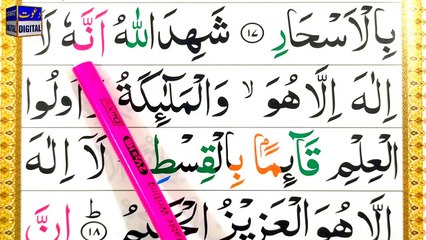 دعوت
DIGITAL
بِالْاَسْحَارِ ﴿۱۷﴾ شَهِدَ اللّٰهُ اَنَّهٗ لَاۤ
اِلٰهَ اِلَّا هُوَ ۙ وَالْمَلٰٓئِكَةُ وَاُولُوا
الْعِلْمِ قَآئِمًاۢ بِالْقِسْطِ ؕ لَاۤ اِلٰهَ
اِلَّا هُوَ الْعَزِيْزُ الْحَكِيْمُ ؕ ﴿۱۸﴾ اِنَّ